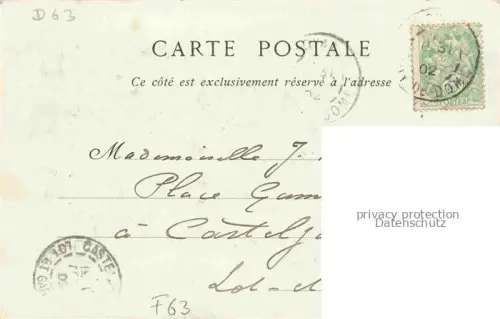 D63
CARTE POSTALE
Ce côté est exclusivement réservé à l'adresse
Mademoiselle J.
Place Gam
à Castelja
Lot-
privacy protection
Datenschutz
F63